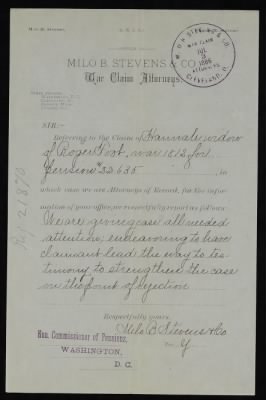 MILO B. STEVENS & CO.
War Claim Attorneys.
MILO B. STEVENS & CO.
WAR CLAIM
JUL
1886
ATTORNEYS
CLEVELAND, O.
SIR:-
Referring to the Claim of Hannah widow
of Roger Root, war 1812, for
Pension # 22635, in
which case we are Attorneys of Record, for the infor-
mation of your office, we respectfully report as follows:
We are giving case all needed
attention, endeavoring to have
claimant lead the way to tes-
timony to strengthen the case
on the point of rejection
Respectfully yours,
Milo B. Stevens & Co
Per
Hon. Commissioner of Pensions,
WASHINGTON,
D. C.